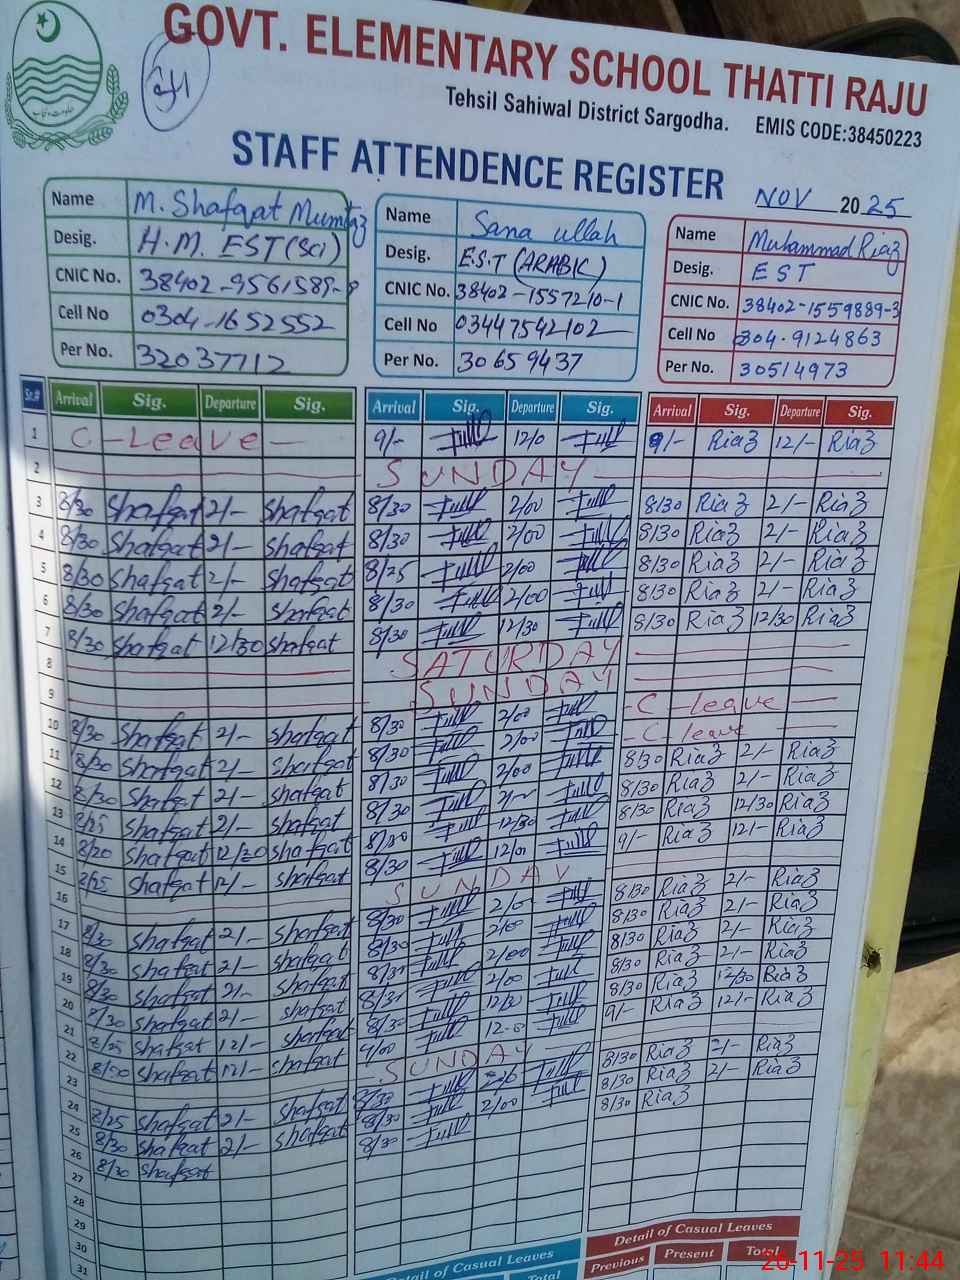 GOVT. ELEMENTARY SCHOOL THATTI RAJU
Tehsil Sahiwal District Sargodha. EMIS CODE:38450223
STAFF ATTENDENCE REGISTER NOV 2025
Name M. Shafqat Mumtaz
Desig. H.M. EST (Sci)
CNIC No. 38402-9561589-9
Cell No 0304-1652552
Per No. 32037712
Name Sana ullah
Desig. E.S.T (ARABIC)
CNIC No. 38402-1557210-1
Cell No 03447542102
Per No. 30659437
Name Muhammad Riaz
Desig. EST
CNIC No. 38402-1559889-3
Cell No 0304-9124863
Per No. 30514973
Sr.# Arrival Sig. Departure Sig. Arrival Sig. Departure Sig. Arrival Sig. Departure Sig.
1 C-Leave- 9/- 12/0 9/- Riaz 12/- Riaz
2 SUNDAY
3 8/30 Shafqat 2/- Shafqat 8/30 2/00 8/30 Riaz 2/- Riaz
4 8/30 Shafqat 2/- Shafqat 8/30 2/00 8/30 Riaz 2/- Riaz
5 8/30 Shafqat 2/- Shafqat 8/25 2/00 8/30 Riaz 2/- Riaz
6 8/30 Shafqat 2/- Shafqat 8/30 2/00 8/30 Riaz 2/- Riaz
7 8/30 Shafqat 12/30 Shafqat 8/30 12/30 8/30 Riaz 12/30 Riaz
8 SATURDAY
9 SUNDAY
10 8/30 Shafqat 2/- Shafqat 8/30 2/00 -C-leave-
11 8/30 Shafqat 2/- Shafqat 8/30 2/00 -C-leave-
12 8/30 Shafqat 2/- Shafqat 8/30 2/00 8/30 Riaz 2/- Riaz
13 8/25 Shafqat 2/- Shafqat 8/30 8/30 Riaz 2/- Riaz
14 8/20 Shafqat 12/30 Shafqat 8/30 12/30 8/30 Riaz 12/30 Riaz
15 8/25 Shafqat 12/- Shafqat 8/30 12/00 9/- Riaz 12/- Riaz
16 SUNDAY
17 8/30 Shafqat 2/- Shafqat 8/30 2/0 8/30 Riaz 2/- Riaz
18 8/30 Shafqat 2/- Shafqat 8/30 2/00 8/30 Riaz 2/- Riaz
19 8/30 Shafqat 2/- Shafqat 2/00 8/30 Riaz 2/- Riaz
20 Shafqat 2/- Shafqat 2/00 8/30 Riaz 2/- Riaz
21 8/25 Shafqat 12/- Shafqat 8/30 12/30 8/30 Riaz 12/30 Riaz
22 Shafqat 12/- Shafqat 9/00 12-0 9/- Riaz 12/- Riaz
23 SUNDAY
24 8/25 Shafqat 2/- Shafqat 8/30 8/30 Riaz 2/- Riaz
25 8/30 Shafqat 2/- Shafqat 8/30 2/00 8/30 Riaz 2/- Riaz
26 8/30 Shafqat 8/30 8/30 Riaz
27
28
29
30
31
Detail of Casual Leaves
Total
Detail of Casual Leaves
Previous Present Total
26-11-25 11:44